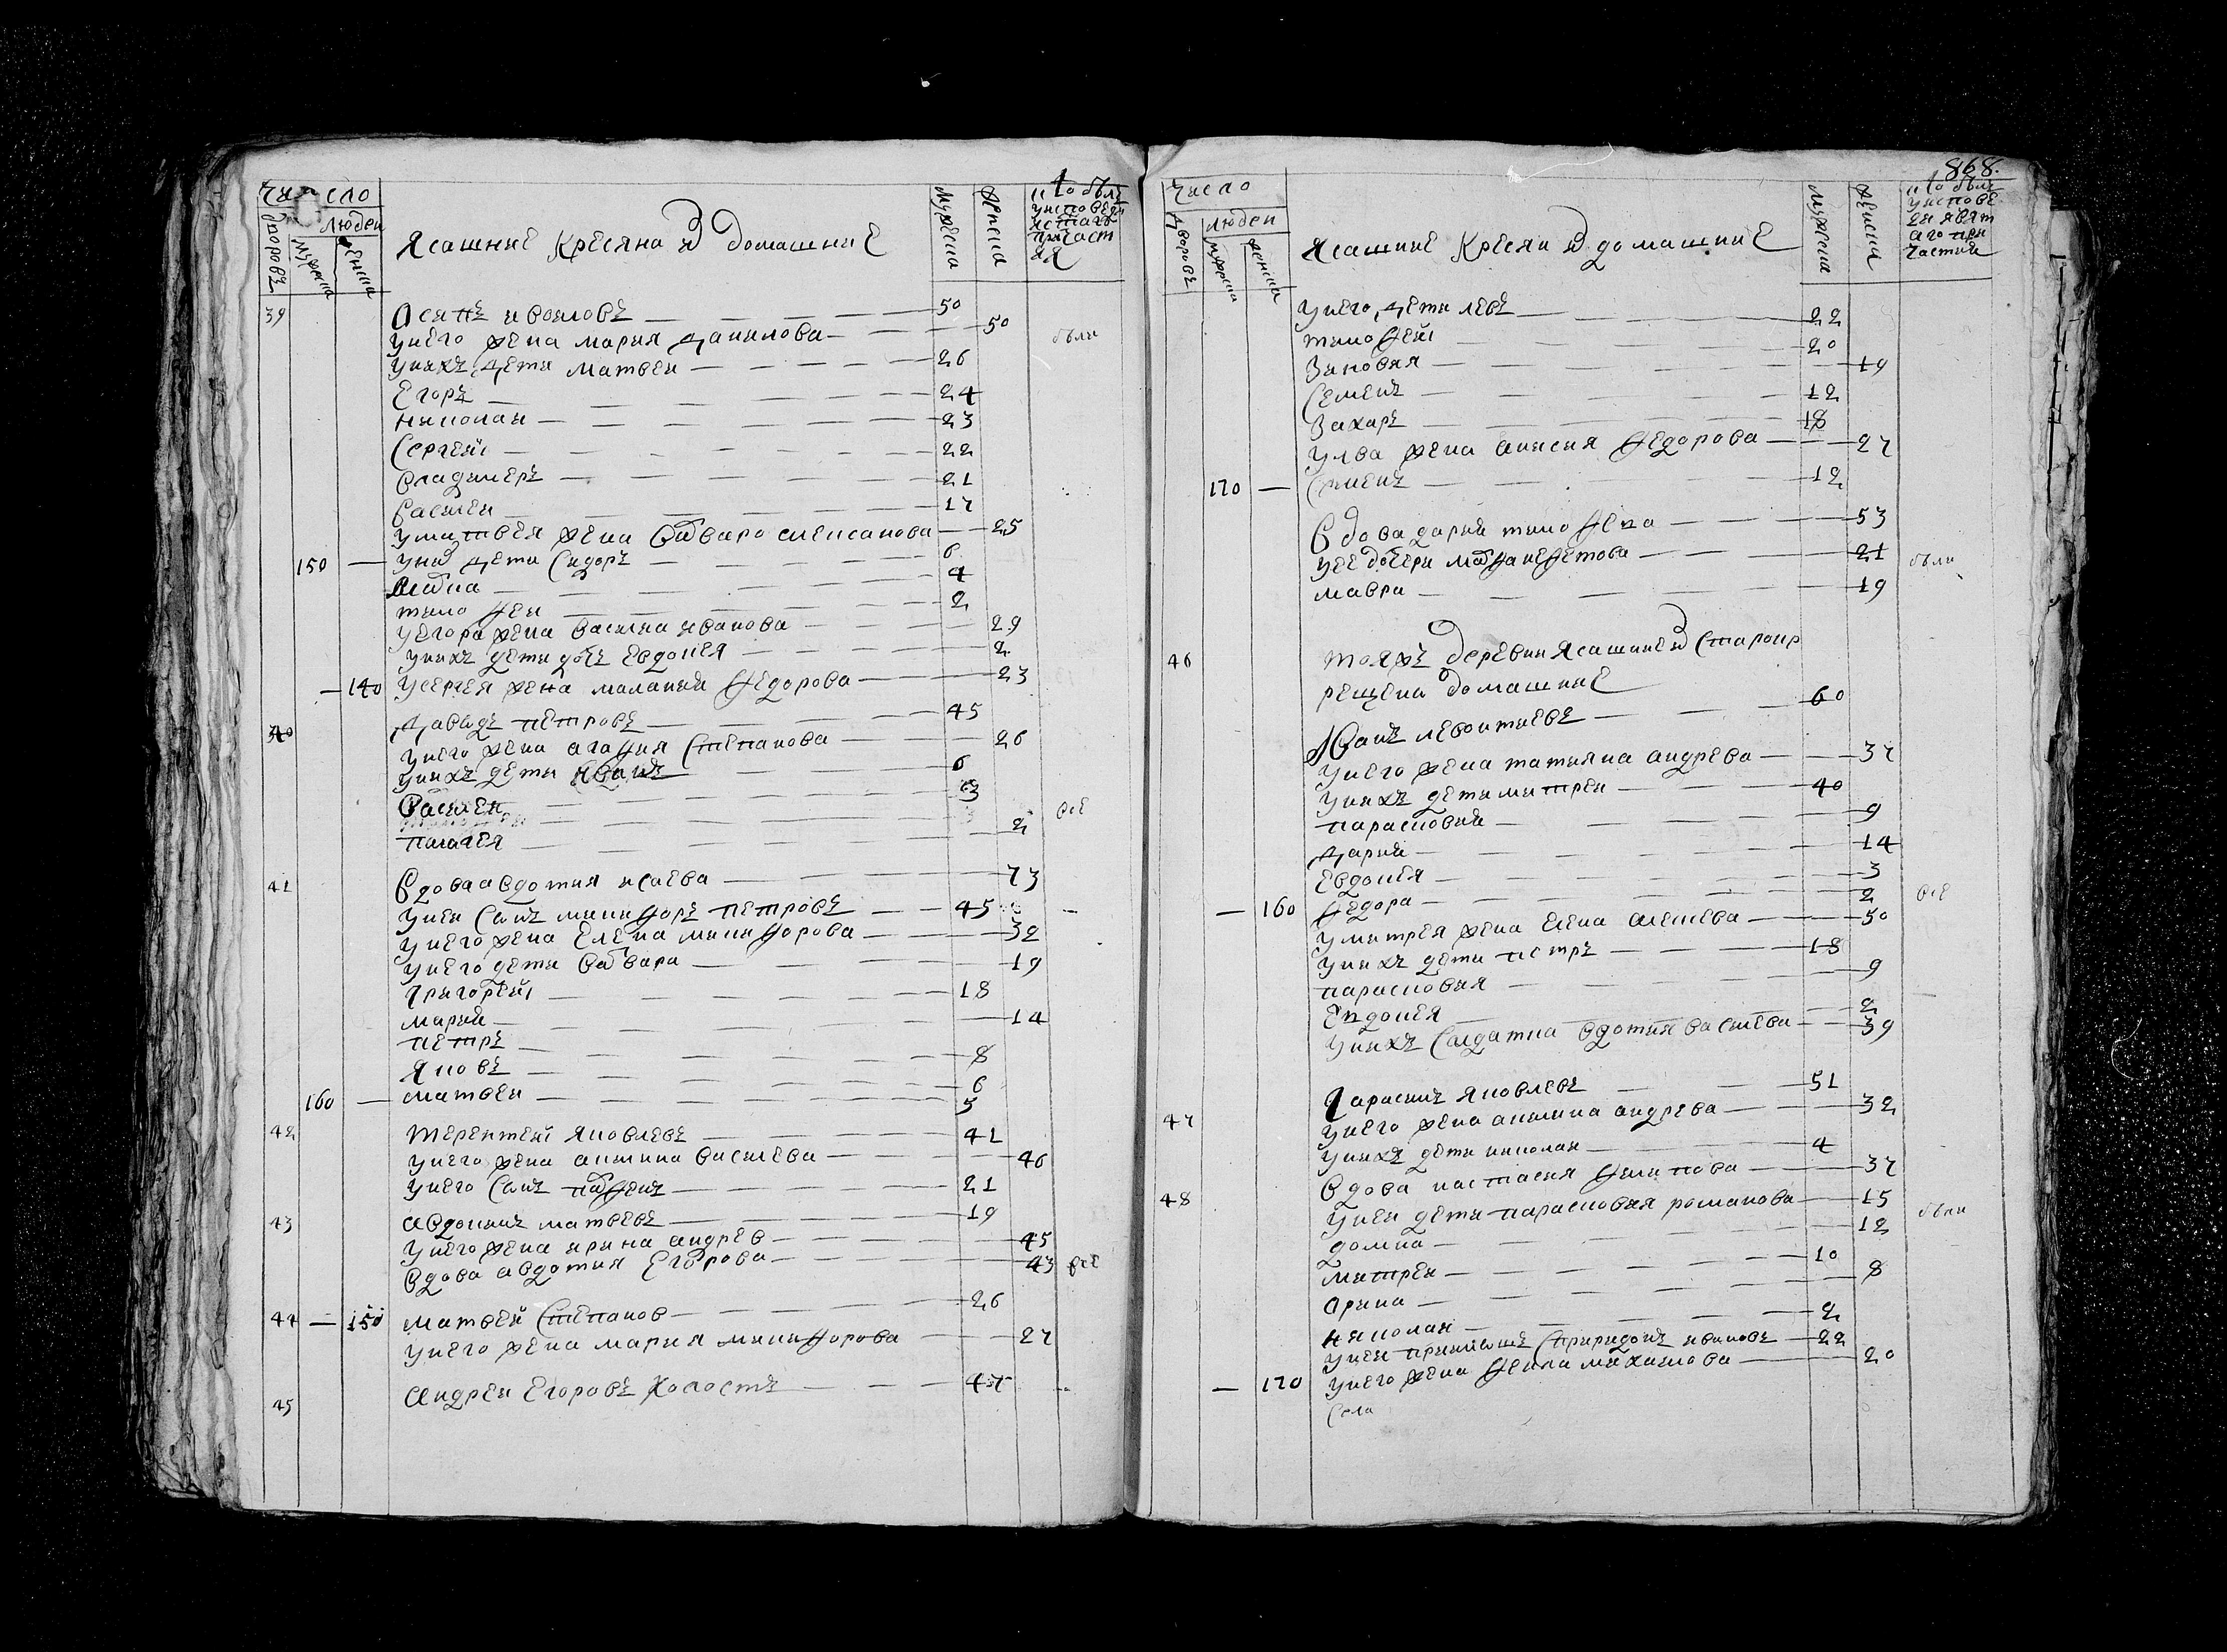 Число
Людеи
Дворовъ
Мужеска
Женска
Ясашние Кресяна и домашние
Мужеска
Женска
кто былъ
у исповеди
и стаго
причаст
ия
39 Осипъ ивановъ 50
у него жена мария данилова 50 были
у нихъ дети матвеи 26
Егоръ 24
николаи 23
Сергеиi 22
владимеръ 21
василеи 17
у матвея жена варвара алексанова 25
150 у них дети Сидоръ 6
4
тимофеи 2
у егора жена василиа иванова 29
у нихъ дети дочь Евдокея 2
140 у сергея жена малания федорова 23
40 Давыдъ петровъ 45
у него жена агафия Степанова 26
у нихъ дети Иванъ 6
василеи 3
все
пелагея 2
41 вдова авдотия исаева 73
у неи Сынъ никифоръ петровъ 45
у него жена Елена никифорова 32
у него дети варвара 19
Григореиi 18
мария 14
петръ 8
Яковъ 6
160 матвеи 5
42 терентеиi яковлевъ 41
у него жена акилина василева 46
у него Сынъ парфенъ 21
43 авдокимъ матвевъ 19
у него жена ирина андрев 45
вдова авдотия Егорова 43 все
44 150 матвеи Степанов 26
у него жена мария никифорова 27
45 Андреи Егоровъ Холостъ 47
868.
Число
Людеи
Дворовъ
Мужеска
Женска
Ясашние Кресяни и домашние
Мужеска
Женска
кто былъ
у испове
ди и свят
аго при
частия
у него дети левъ 22
тимофеиi 20
Зиновия 19
Семенъ 12
Захаръ 18
у лва жена анисия федорова 27
170 Семенъ 12
вдова дария тимофева 53
у ее дочери марфа нефетова 21 были
мавра 19
46 тояжъ деревни ясашнеи Старокр
рещена домашние
Иванъ левонтиевъ 60
у него жена татияна андрева 37
у нихъ дети митреи 40
парасковия 9
Дария 14
Евдокея 3
160 федора 2 все
у митрея жена Елена алексева 50
у нихъ дети петръ 18
парасковия 9
Евдокея 2
у нихъ Салдатка вдотия василева 39
Гарасимъ яковлевъ 51
47 у него жена акилина андрева 32
у нихъ дети николаи 4
вдова настасия филипова 37
48 у неи дети парасковия романова 15 были
домна 12
митреи 10
Орина 8
николаи 2
у неи приимышъ Спиридонъ ивановъ 22
170 у него жена фекла михаилова 20
Села